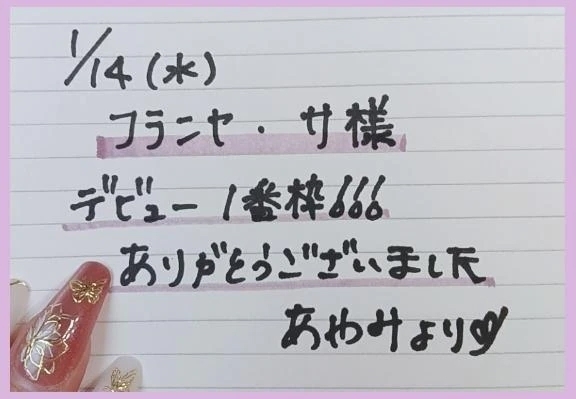 1/14(水)
フランセ・サ様
デビュー1番枠!!!
ありがとうございました
あやみより♡